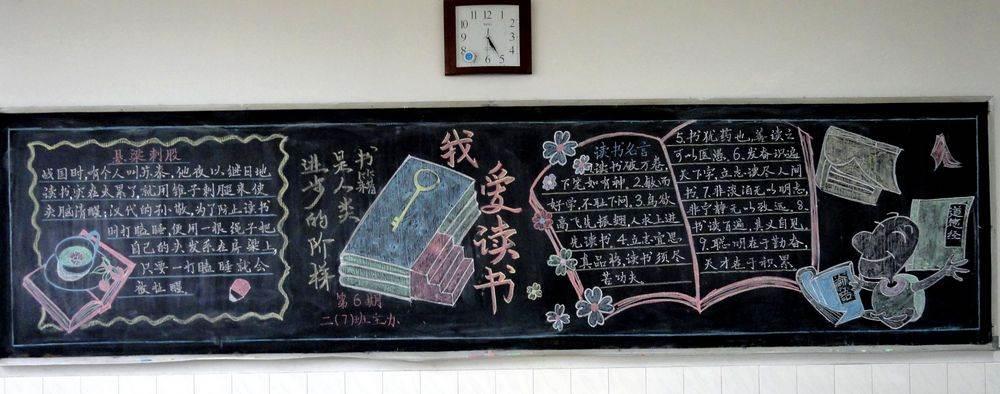 12
11
1
10
2
9
3
8
4
7
5
6
悬梁刺股
战国时,有个人叫苏秦,他夜以继日地
读书,实在太累了,就用锥子刺腿来使
头脑清醒;汉代的孙敬,为了防止读书
时打瞌睡,便用一根绳子把
自己的头发系在房梁上,
只要一打瞌睡就会
被扯醒
书籍
是人类
进步的阶梯
第6期
二(7)班主办
我爱读书
读书名言
1.读书破万卷,
下笔如有神.2.敏而
好学,不耻下问.3.鸟欲
高飞先振翅,人求上进
先读书.4.立志宜思
真品格,读书须尽
苦功夫.
5.书犹药也,善读之
可以医愚.6.发奋识遍
天下字,立志读尽人间
书.7.非淡泊无以明志,
非宁静无以致远.8.
书读百遍,其义自见
9.聪明在于勤奋,
天才在于积累.
道德经
论语